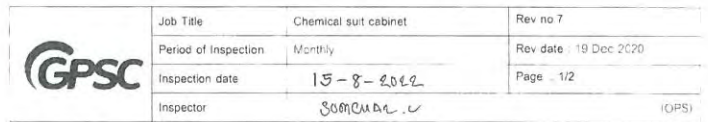 Job Title Chemical suit cabinet Rev no 7
GPSC
Period of Inspection Monthly Rev date : 19 Dec 2020
Inspection date 15-8-2022 Page : 1/2
Inspector (OPS)